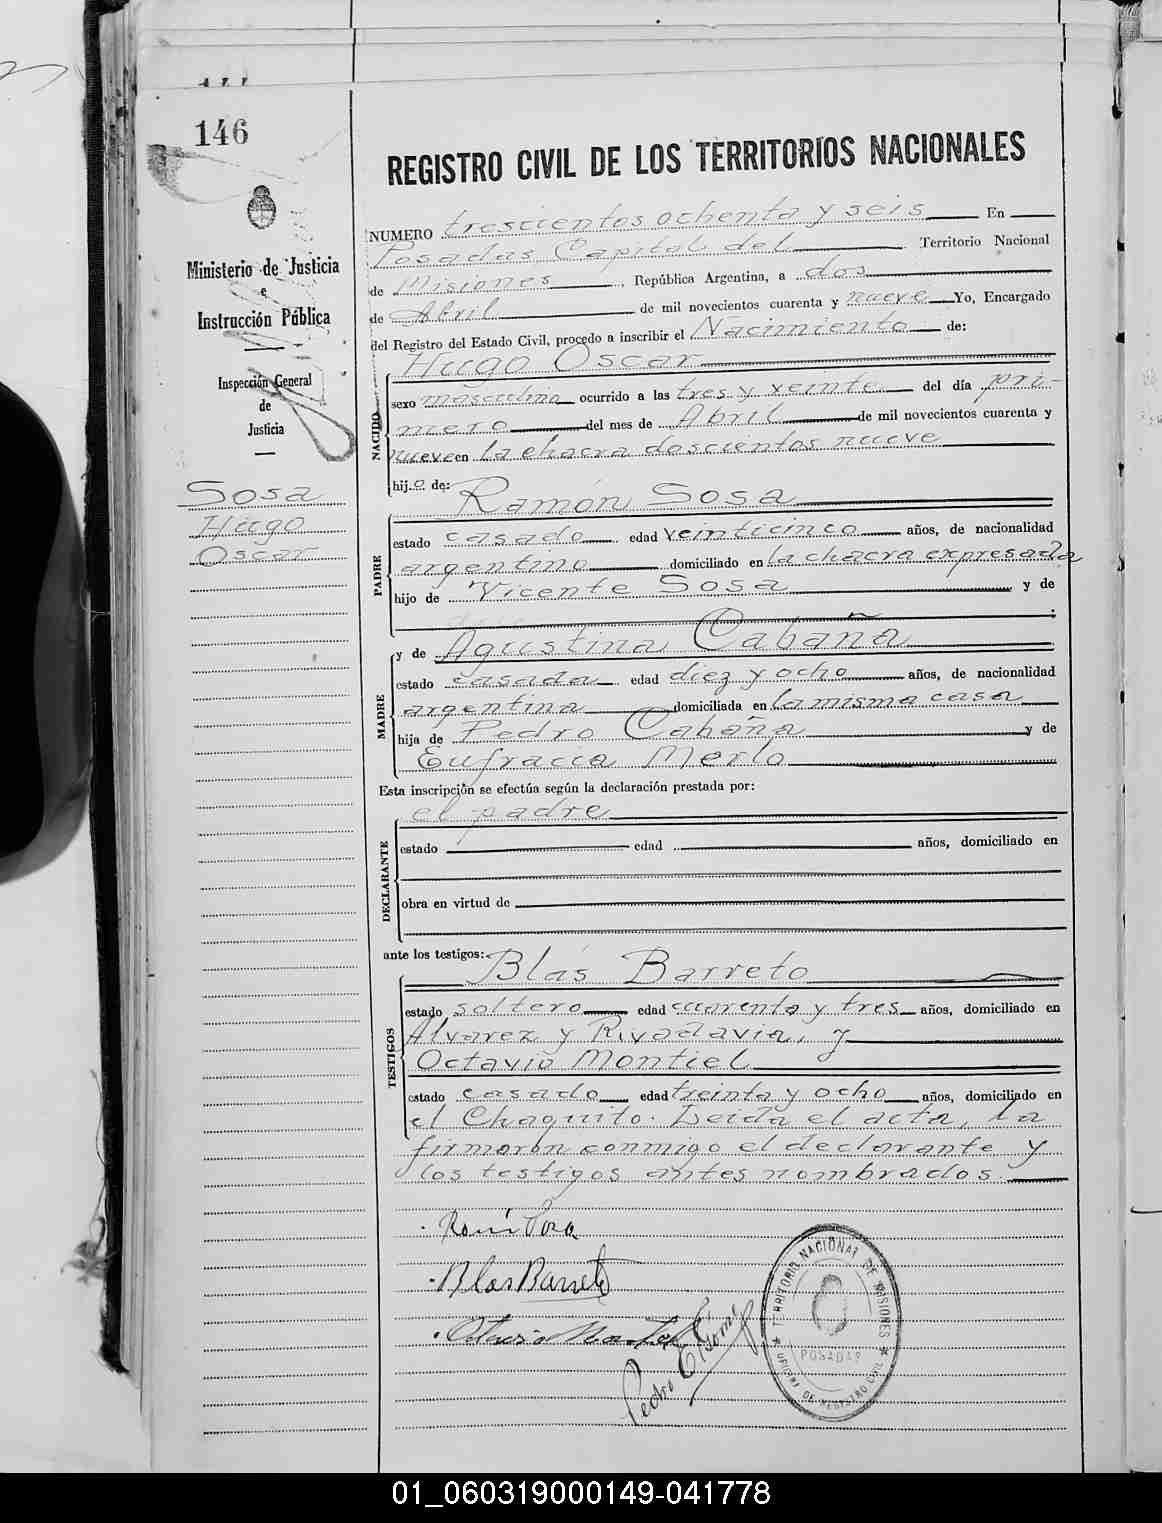 146
REGISTRO CIVIL DE LOS TERRITORIOS NACIONALES
Ministerio de Justicia
e
Instrucción Pública
Inspección General
de
Justicia
Sosa
Hugo
Oscar
NUMERO trescientos ochenta y seis En
Posadas Capital del Territorio Nacional
de Misiones, República Argentina, a dos
de Abril de mil novecientos cuarenta y nueve Yo, Encargado
del Registro del Estado Civil, procedo a inscribir el Nacimiento de:
Hugo Oscar
NACIDO
sexo masculino ocurrido a las tres y veinte del día pri-
mero del mes de Abril de mil novecientos cuarenta y
nueve en la chacra doscientos nueve
hijo de: Ramón Sosa
PADRE
estado casado edad veinticinco años, de nacionalidad
argentino domiciliado en la chacra expresada
hijo de Vicente Sosa y de
;
y de Agustina Cabaña
MADRE
estado casada edad diez y ocho años, de nacionalidad
argentina domiciliada en la misma casa
hija de Pedro Cabaña y de
Eufracia Merlo
Esta inscripción se efectúa según la declaración prestada por:
el padre
DECLARANTE
estado edad años, domiciliado en
obra en virtud de
ante los testigos: Blás Barreto
TESTIGOS
estado soltero edad cuarenta y tres años, domiciliado en
Alvarez y Rivadavia, y
Octavio Montiel
estado casado edad treinta y ocho años, domiciliado en
el Chaquito. Leida el acta, la
firmaron conmigo el declarante y
los testigos antes nombrados.
Ramón Sosa
Blas Barreto
Octavio Montiel
Pedro
TERRITORIO NACIONAL DE MISIONES
POSADAS
OFICINA DE REGISTRO CIVIL
01_060319000149-041778